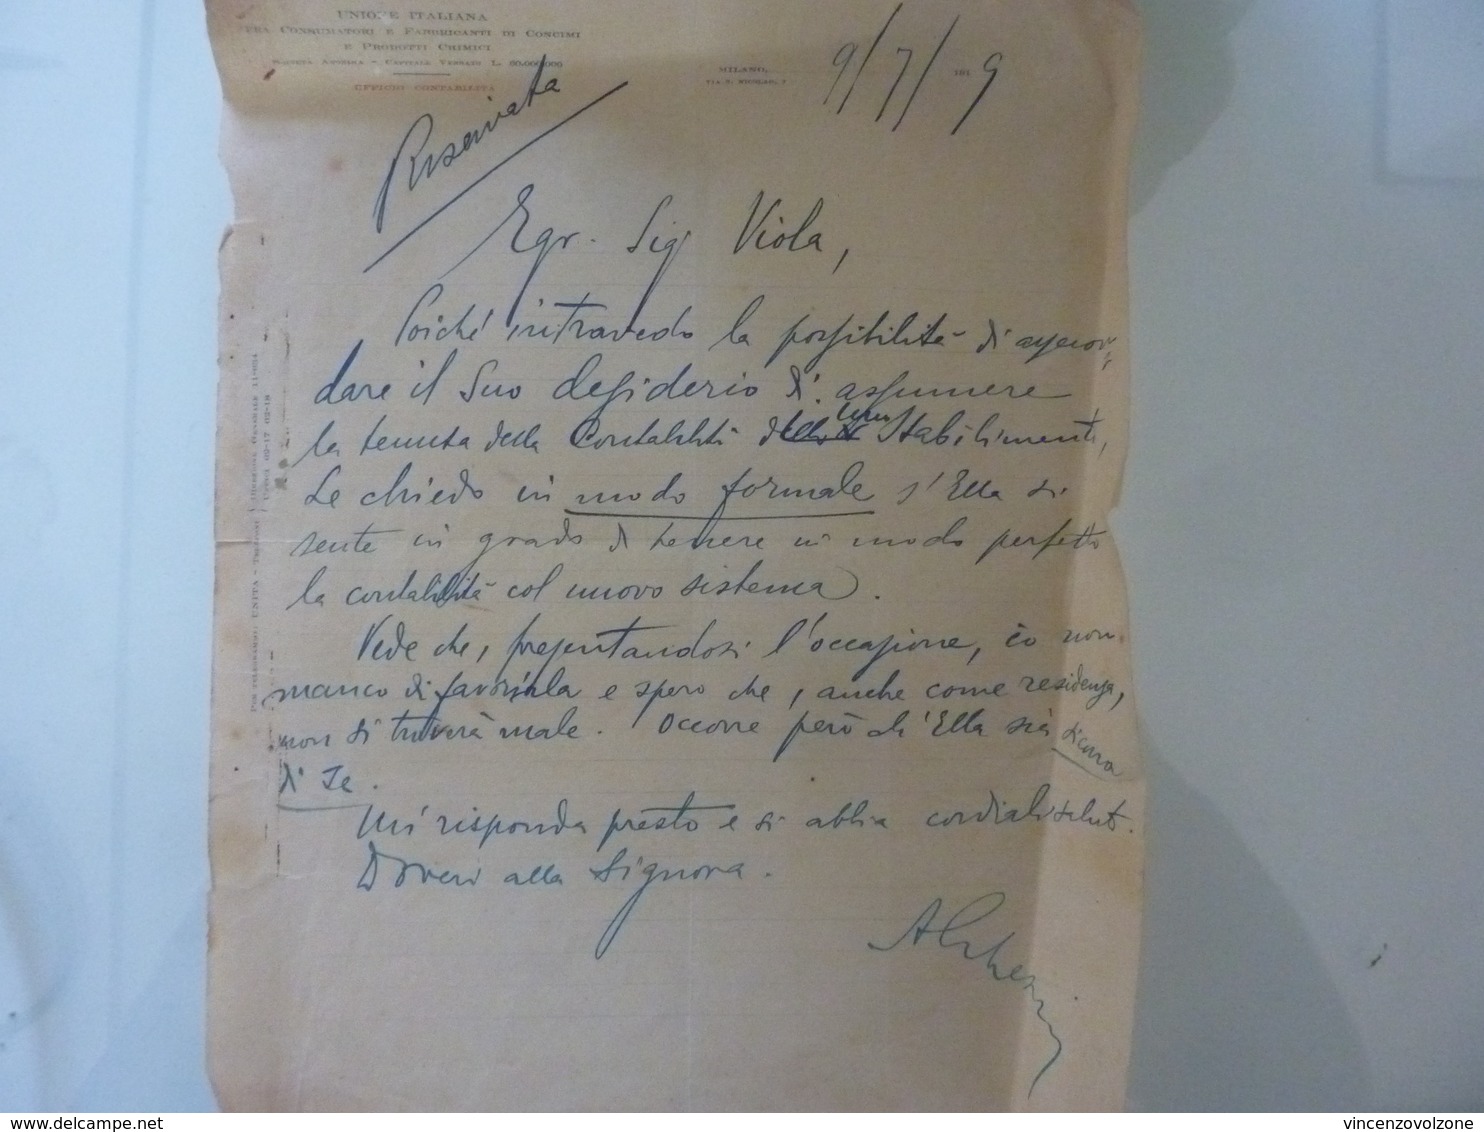 UNIONE ITALIANA
FRA CONSUMATORI E FABBRICANTI DI CONCIMI
E PRODOTTI CHIMICI
SOCIETÀ ANONIMA - CAPITALE VERSATO L. 60.000.000
UFFICIO CONTABILITÀ
MILANO,
VIA S. NICOLAO, 7
9/7/ 191 9
Riservata
Egr. Sig Viola,
Poiché intravedo la possibilità di assecon-
dare il Suo desiderio di assumere
la tenuta della Contabilità Stabilimenti,
Le chiedo in modo formale s'Ella si
sente in grado di tenere in modo perfetto
la contabilità col nuovo sistema.
Vede che, presentandosi l'occasione, io non
manco di favorirla e spero che, anche come residenza,
non si troverà male. Occorre però ch'Ella sia sicura
di Se.
Mi risponda presto e si abbia cordiali saluti.
Doveri alla Signora.
PER TELEGRAMMI: UNITA - TELEFONI DIREZIONE GENERALE 11-054
UFFICI 02-17 02-18
delcampe.net
vincenzovolzone